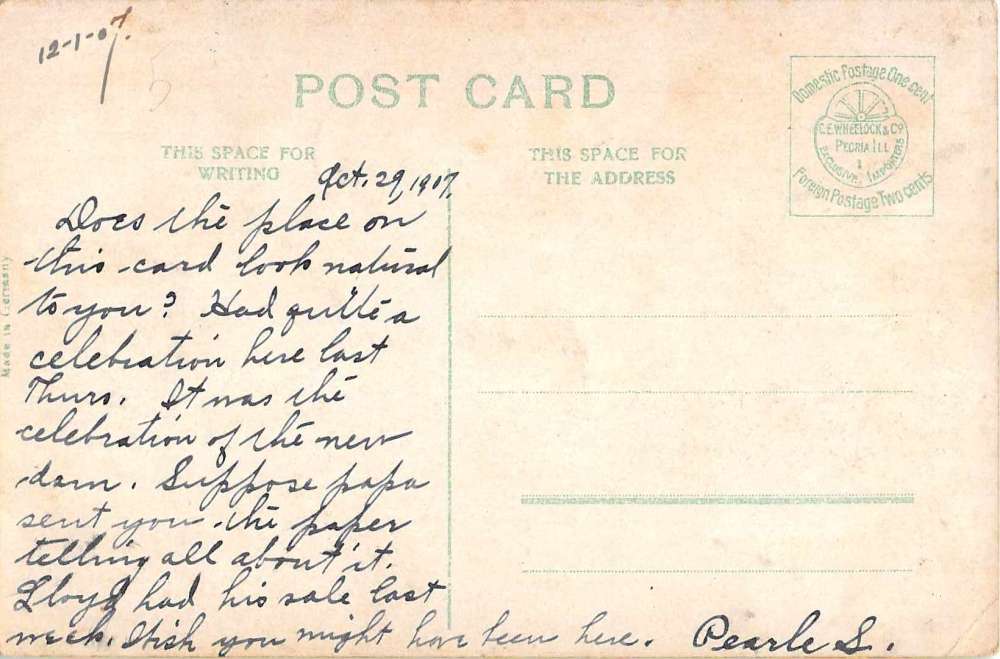 12-1-07.
POST CARD
Domestic Postage One cent
C.E. WHEELOCK & CO
PEORIA ILL
EXCLUSIVE IMPORTERS
Foreign Postage Two cents
THIS SPACE FOR
WRITING
THIS SPACE FOR
THE ADDRESS
Made in Germany
Oct. 29, 1907,
Does the place on
this card look natural
to you? Had quite a
celebration here last
Thurs. It was the
celebration of the new
dam. Suppose papa
sent you the paper
telling all about it.
Lloyd had his sale last
week. Wish you might have been here. Pearle S.